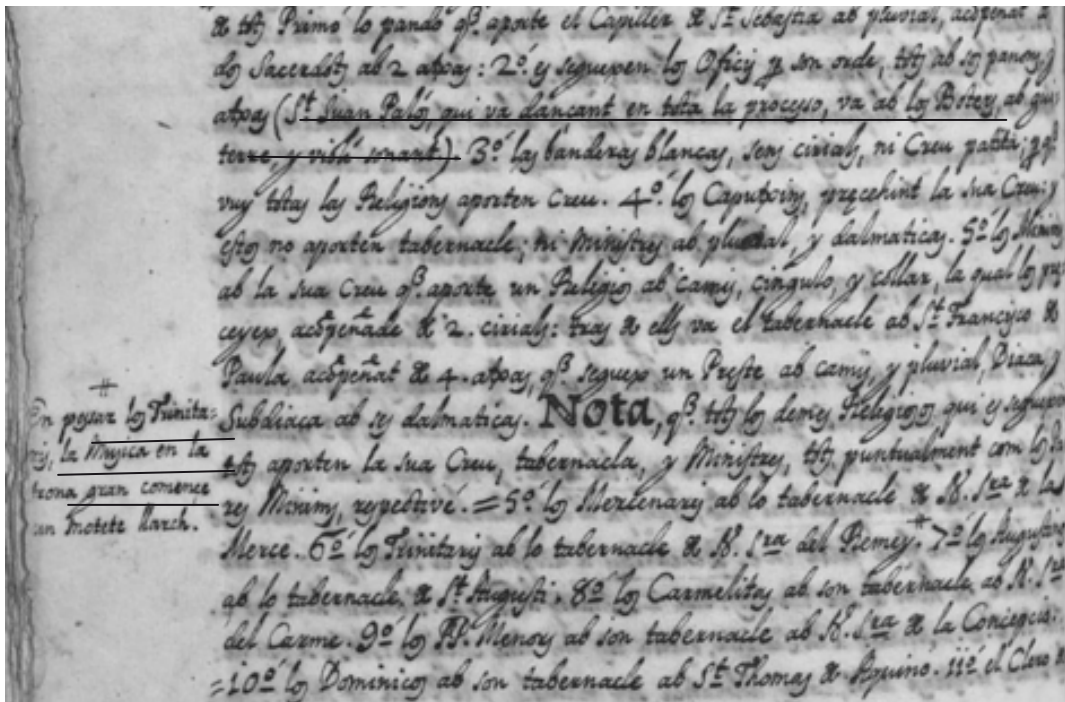 de tots Primo lo pando q.e aporte el Capiller de S.t Sebastia ab pluvial, acõpeñat de
dos Sacerdots ab 2 atxas: 2.º es seguexen los Oficis per son orde, tots ab ses panons, y
atxas (S.t Juan Palós, qui va dançant en tota la processo, va ab los Boters, ab gui=
terre, y violí sonant). 3.º las banderas blancas, sens cirials, ni Creu patita; p q.e
vuy totas las Religions aporten Creu. 4.º los Caputxins, precehint la sua Creu: y
estos no aporten tabernacle; ni Ministres ab pluvial, y dalmaticas. 5.º los Minims
ab la sua Creu q.e aporte un Religios ab camis, cingulo, y collar, la qual los pre
ceyex, acõpeñade de 2. cirials: tras de ells va el tabernacle ab S.t Francisco de
Paula acõpeñat de 4. atxas, q.e seguex un Preste ab camis, y pluvial, Diaca, y
Subdiaca ab ses dalmaticas. Nota, q.e tots los demes Religiosos qui es seguexen
tots aporten la sua Creu, tabernacla, y Ministres, tots puntualment com los Pa
res Minims, respectivé. = 5.º los Mercenaris ab lo tabernacle de N. S.ra de las
Merce. 6.º los Trinitaris ab lo tabernacle de N. S.ra del Remey. # 7.º los Augustins
ab lo tabernacle de S.t Augusti. 8.º los Carmelitas ab son tabernacle ab N. S.ra
del Carme. 9.º los PP. Menors ab son tabernacle ab N. S.ra de la Concepcio.
=10.º los Dominicos ab son tabernacle ab S.t Thomas de Aquino. 11.º el Clero de
#
En passar los Trinita=
ris, la Musica en la
trona gran comence
un Motete llarch.